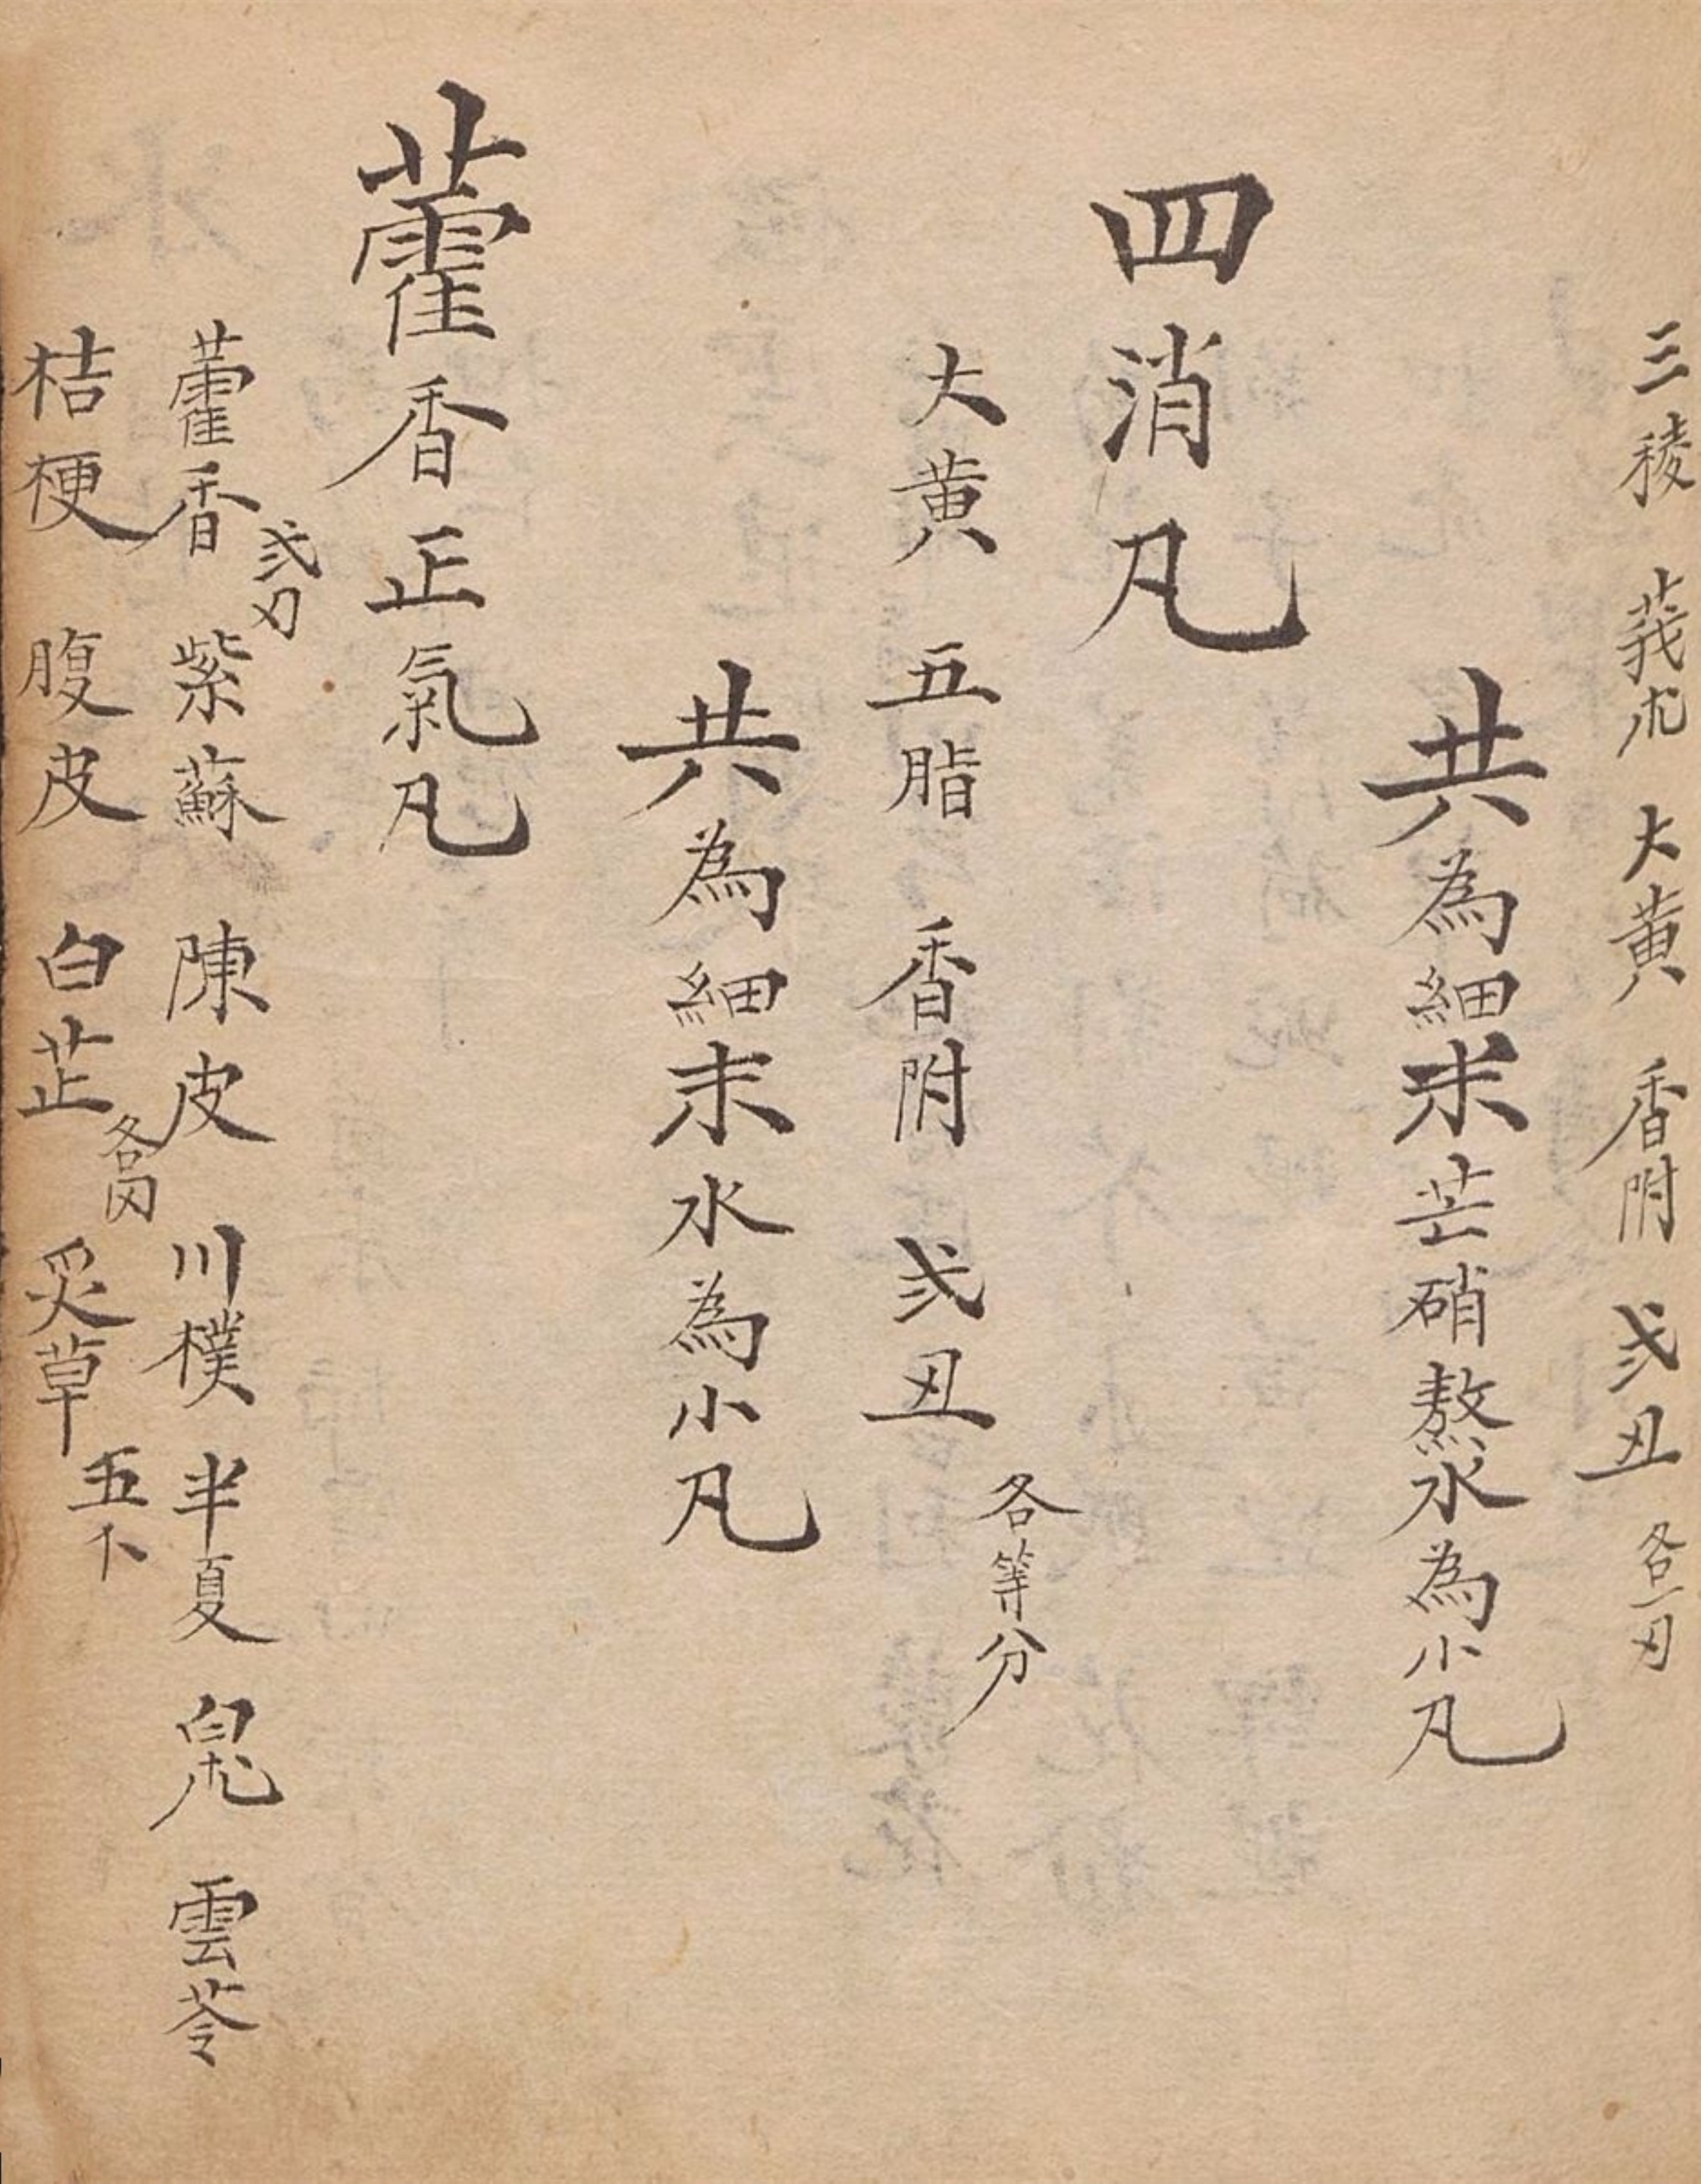 三稜 莪朮 大黄 香附 弍丑 各一刃
共為細末芒硝熬水為小凡
四消凡
大黄 五脂 香附 弍丑 各等分
共為細末水為小凡
藿香正氣凡
藿香 弍刃 紫蘇 陳皮 川樸 半夏 白朮 雲苓
桔梗 腹皮 白芷 各 炙草 五卜